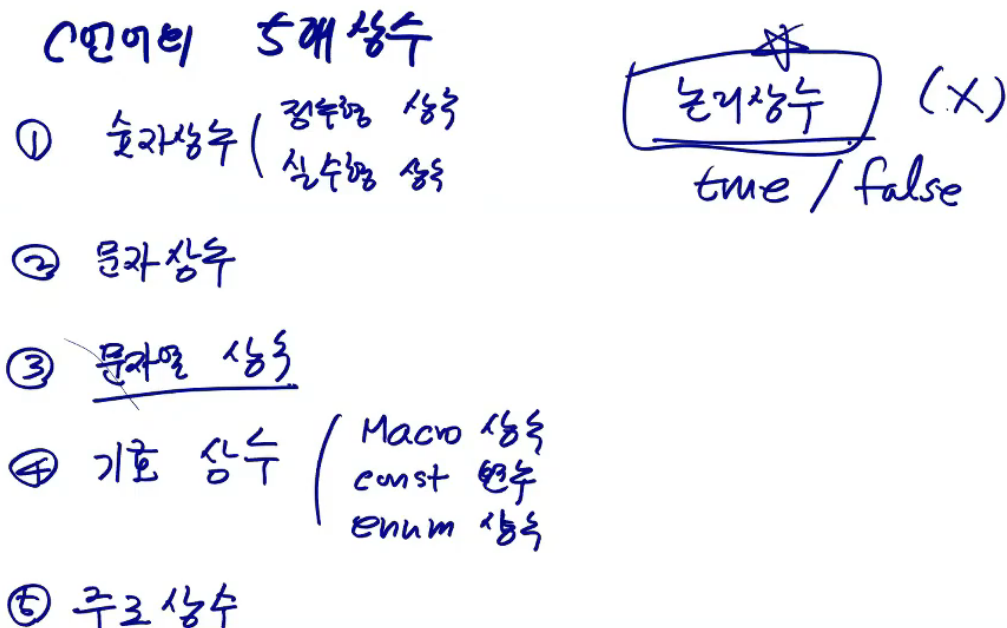 C언어의 5대 상수
① 숫자상수 ( 정수형 상수
실수형 상수
② 문자상수
③ 문자열 상수
④ 기호 상수 ( Macro 상수
const 변수
enum 상수
⑤ 주소상수
논리상수 (X)
true / false